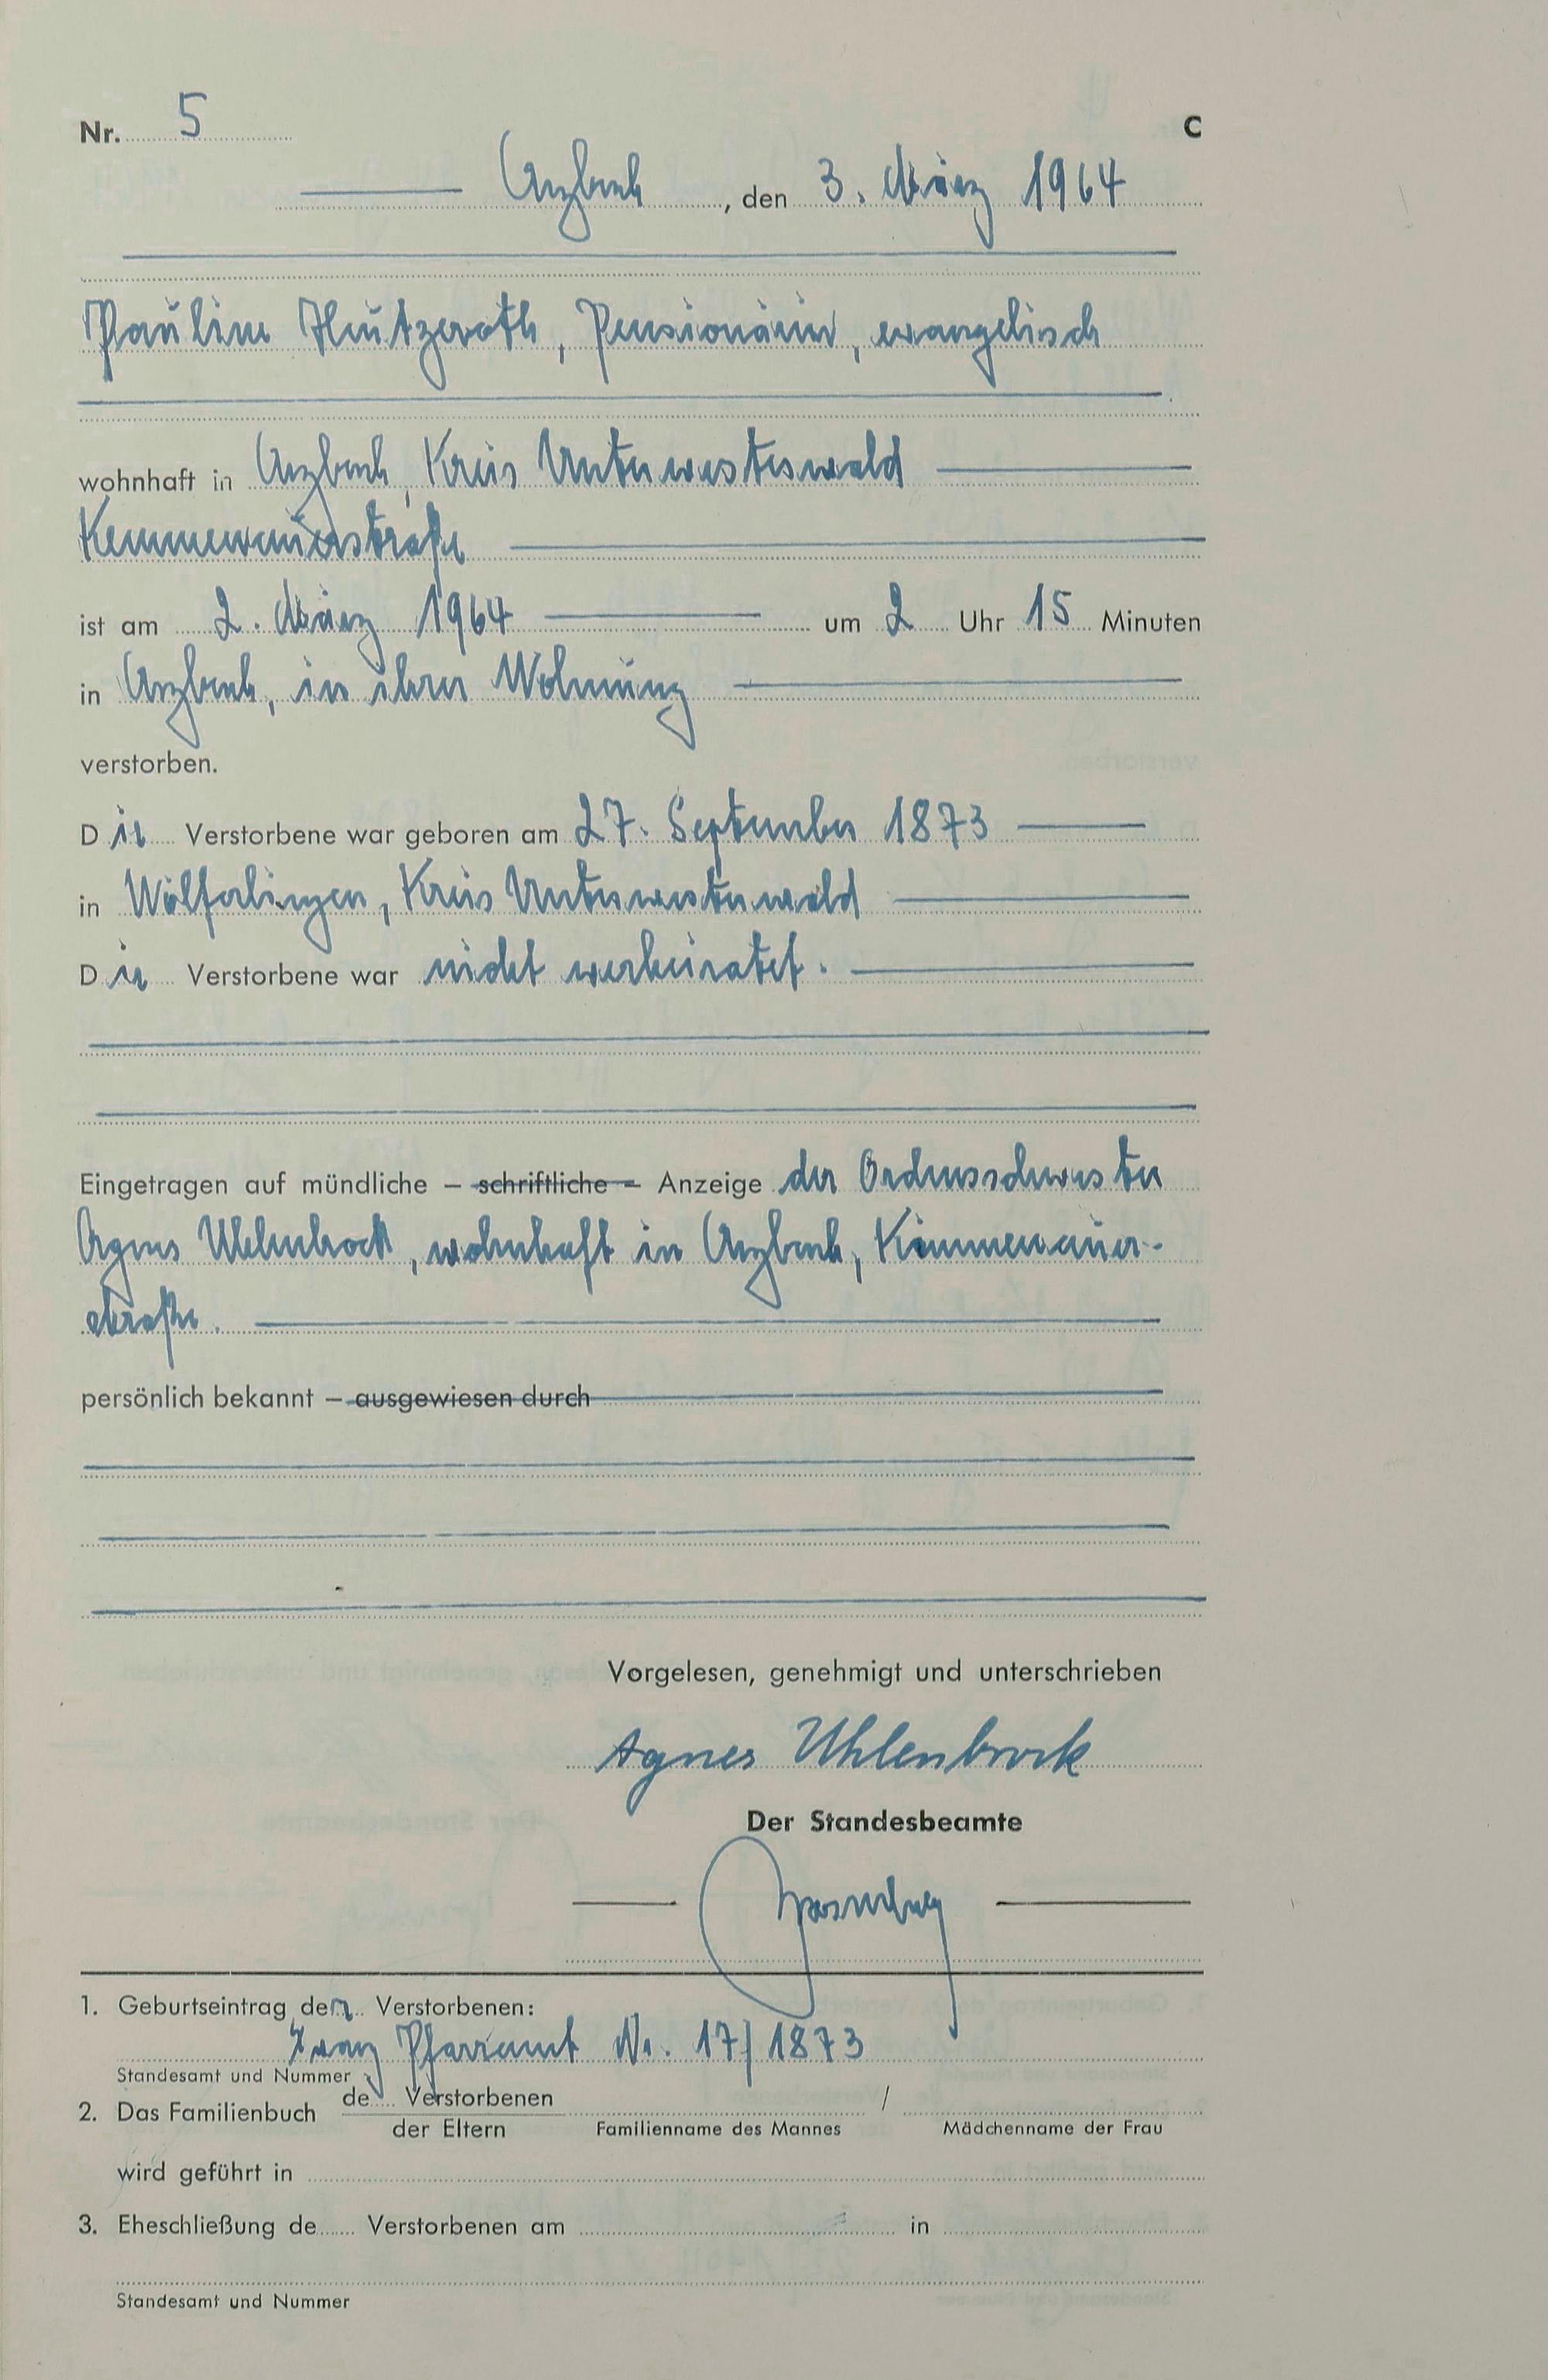 Nr. 5 C
Arzbach, den 3. März 1964
Pauline Hützeroth, Pensionärin, evangelisch
wohnhaft in Arzbach, Kreis Unterwesterwald
Kemmenauerstraße
ist am 2. März 1964 um 2 Uhr 15 Minuten
in Arzbach, in ihrer Wohnung
verstorben.
Die Verstorbene war geboren am 27. September 1873
in Wölferlingen, Kreis Unterwesterwald
Die Verstorbene war nicht verheiratet.
Eingetragen auf mündliche – schriftliche – Anzeige der Ordensschwester
Agnes Uhlenbrock, wohnhaft in Arzbach, Kemmenauer-
straße.
persönlich bekannt – ausgewiesen durch
Vorgelesen, genehmigt und unterschrieben
Agnes Uhlenbrock
Der Standesbeamte
1. Geburtseintrag der Verstorbenen:
Pfarramt Nr. 17/1873
Standesamt und Nummer
2. Das Familienbuch de Verstorbenen /
der Eltern Familienname des Mannes Mädchenname der Frau
wird geführt in
3. Eheschließung de Verstorbenen am in
Standesamt und Nummer